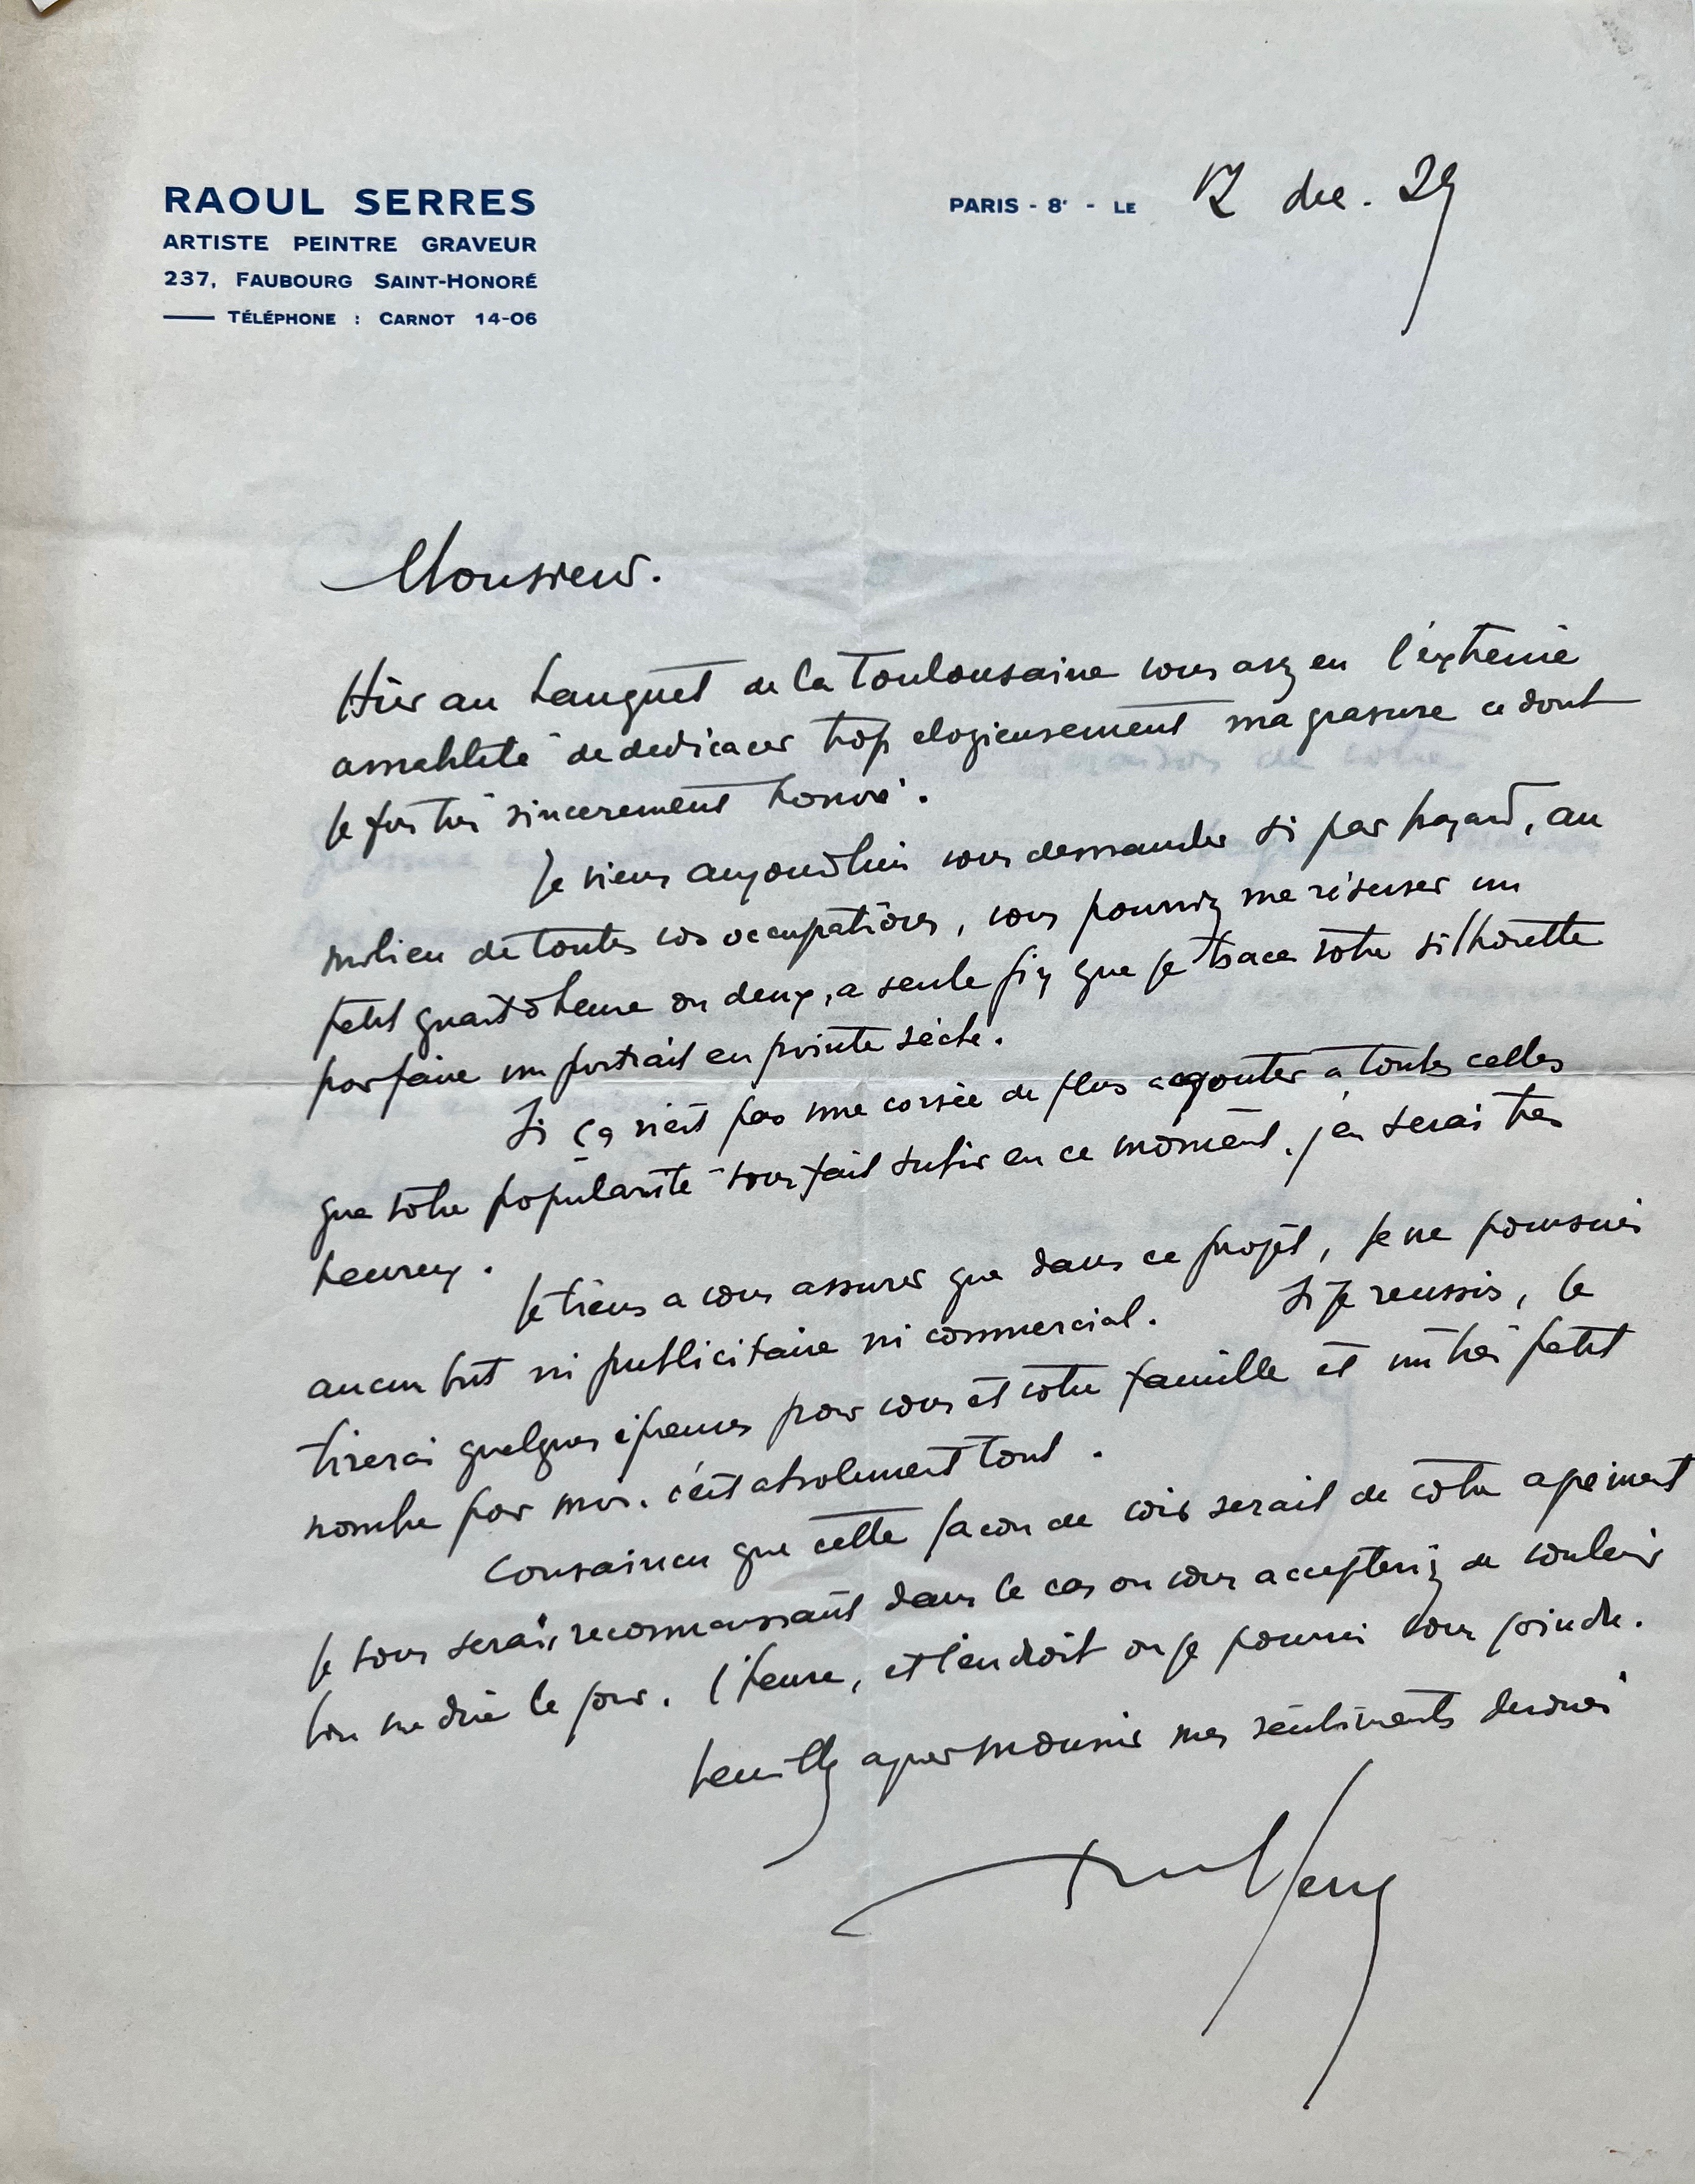 RAOUL SERRES
ARTISTE PEINTRE GRAVEUR
237, FAUBOURG SAINT-HONORÉ
TÉLÉPHONE : CARNOT 14-06
PARIS - 8e - LE 12 dec. 29
Monsieur.
Hier au banquet de la Toulousaine vous avez eu l'extreme
amabilité de dedicacer trop elogieusement ma gravure ce dont
je fus très sincerement honoré.
Je viens aujourd'hui vous demander si par hazard, au
milieu de toutes vos occupations, vous pourriez me réserver un
petit quart d'heure ou deux, a seule fin que je trace votre silhouette
pour faire un portrait en pointe sèche.
Si ça n'est pas une corvée de plus a ajouter a toutes celles
que votre popularité vous fait subir en ce moment. j'en serai tres
heureux.
Je tiens a vous assurer que dans ce projet, je ne poursuis
aucun but ni publicitaire ni commercial. Si je reussis, je
tirerai quelques épreuves pour vous et votre famille et un très petit
nombre pour moi. c'est absolument tout.
Convaincu que cette facon de voir serait de votre agrément
je vous serais reconnaissant dans le cas ou vous accepteriez de vouloir
bien me dire le jour. l'heure, et l'endroit ou je pourrai vous joindre.
Veuillez agreer monsieur mes sentiments devoués
Raoul Serres